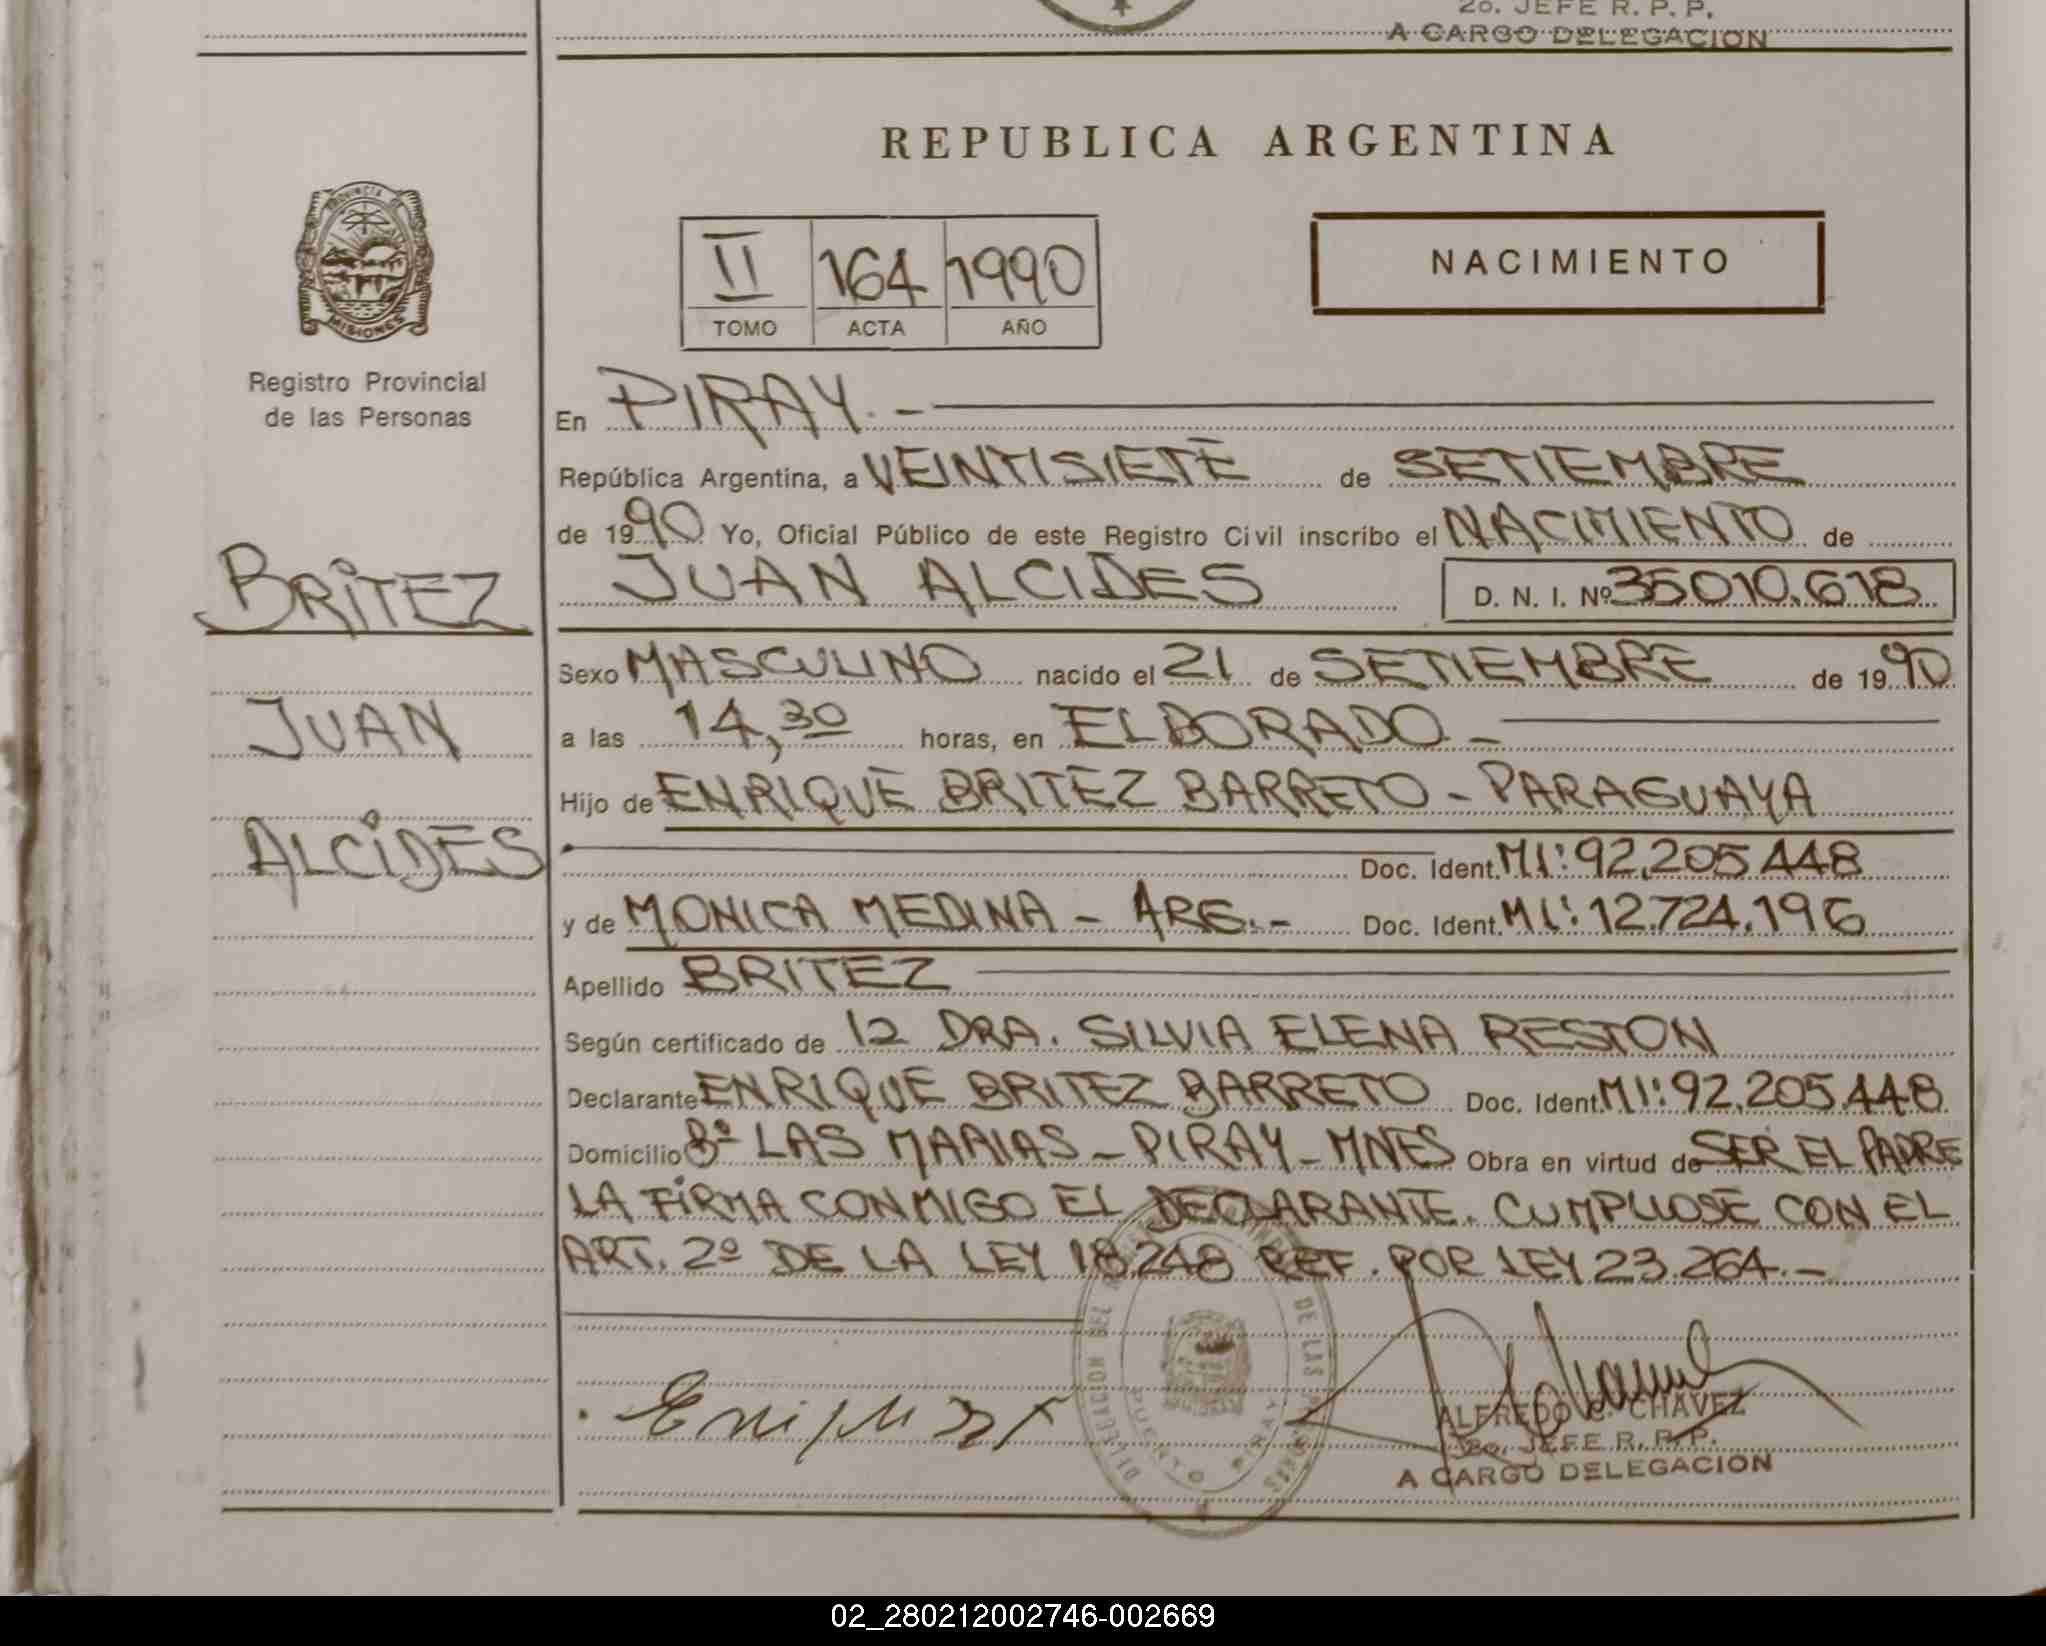 2o. JEFE R. P. P.
A CARGO DELEGACION
REPUBLICA ARGENTINA
PROVINCIA DE
MISIONES
II 164 1990
TOMO ACTA AÑO
NACIMIENTO
Registro Provincial
de las Personas
BRITEZ
JUAN
ALCIDES
En PIRAY.-
República Argentina, a VEINTISIETE de SETIEMBRE
de 1990 Yo, Oficial Público de este Registro Civil inscribo el NACIMIENTO de
JUAN ALCIDES D. N. I. Nº 35010.618
Sexo MASCULINO nacido el 21 de SETIEMBRE de 1990
a las 14,30 horas, en ELDORADO -
Hijo de ENRIQUE BRITEZ BARRETO - PARAGUAYA
Doc. Ident. MI: 92.205448
y de MONICA MEDINA - ARG.- Doc. Ident. MI: 12.724.196
Apellido BRITEZ
Según certificado de 12 DRA. SILVIA ELENA RESTON
Declarante ENRIQUE BRITEZ BARRETO Doc. Ident. MI: 92.205.448
Domicilio Bº LAS MARIAS - PIRAY - MNES Obra en virtud de SER EL PADRE
LA FIRMA CONMIGO EL DECLARANTE. CUMPLIOSE CON EL
ART. 2º DE LA LEY 18.248 REF. POR LEY 23.264.-
DELEGACION DEL DE LAS PERSONAS
PUERTO PIRAY
ALFREDO C. CHAVEZ
2o. JEFE R. P. P.
A CARGO DELEGACION
02_280212002746-002669